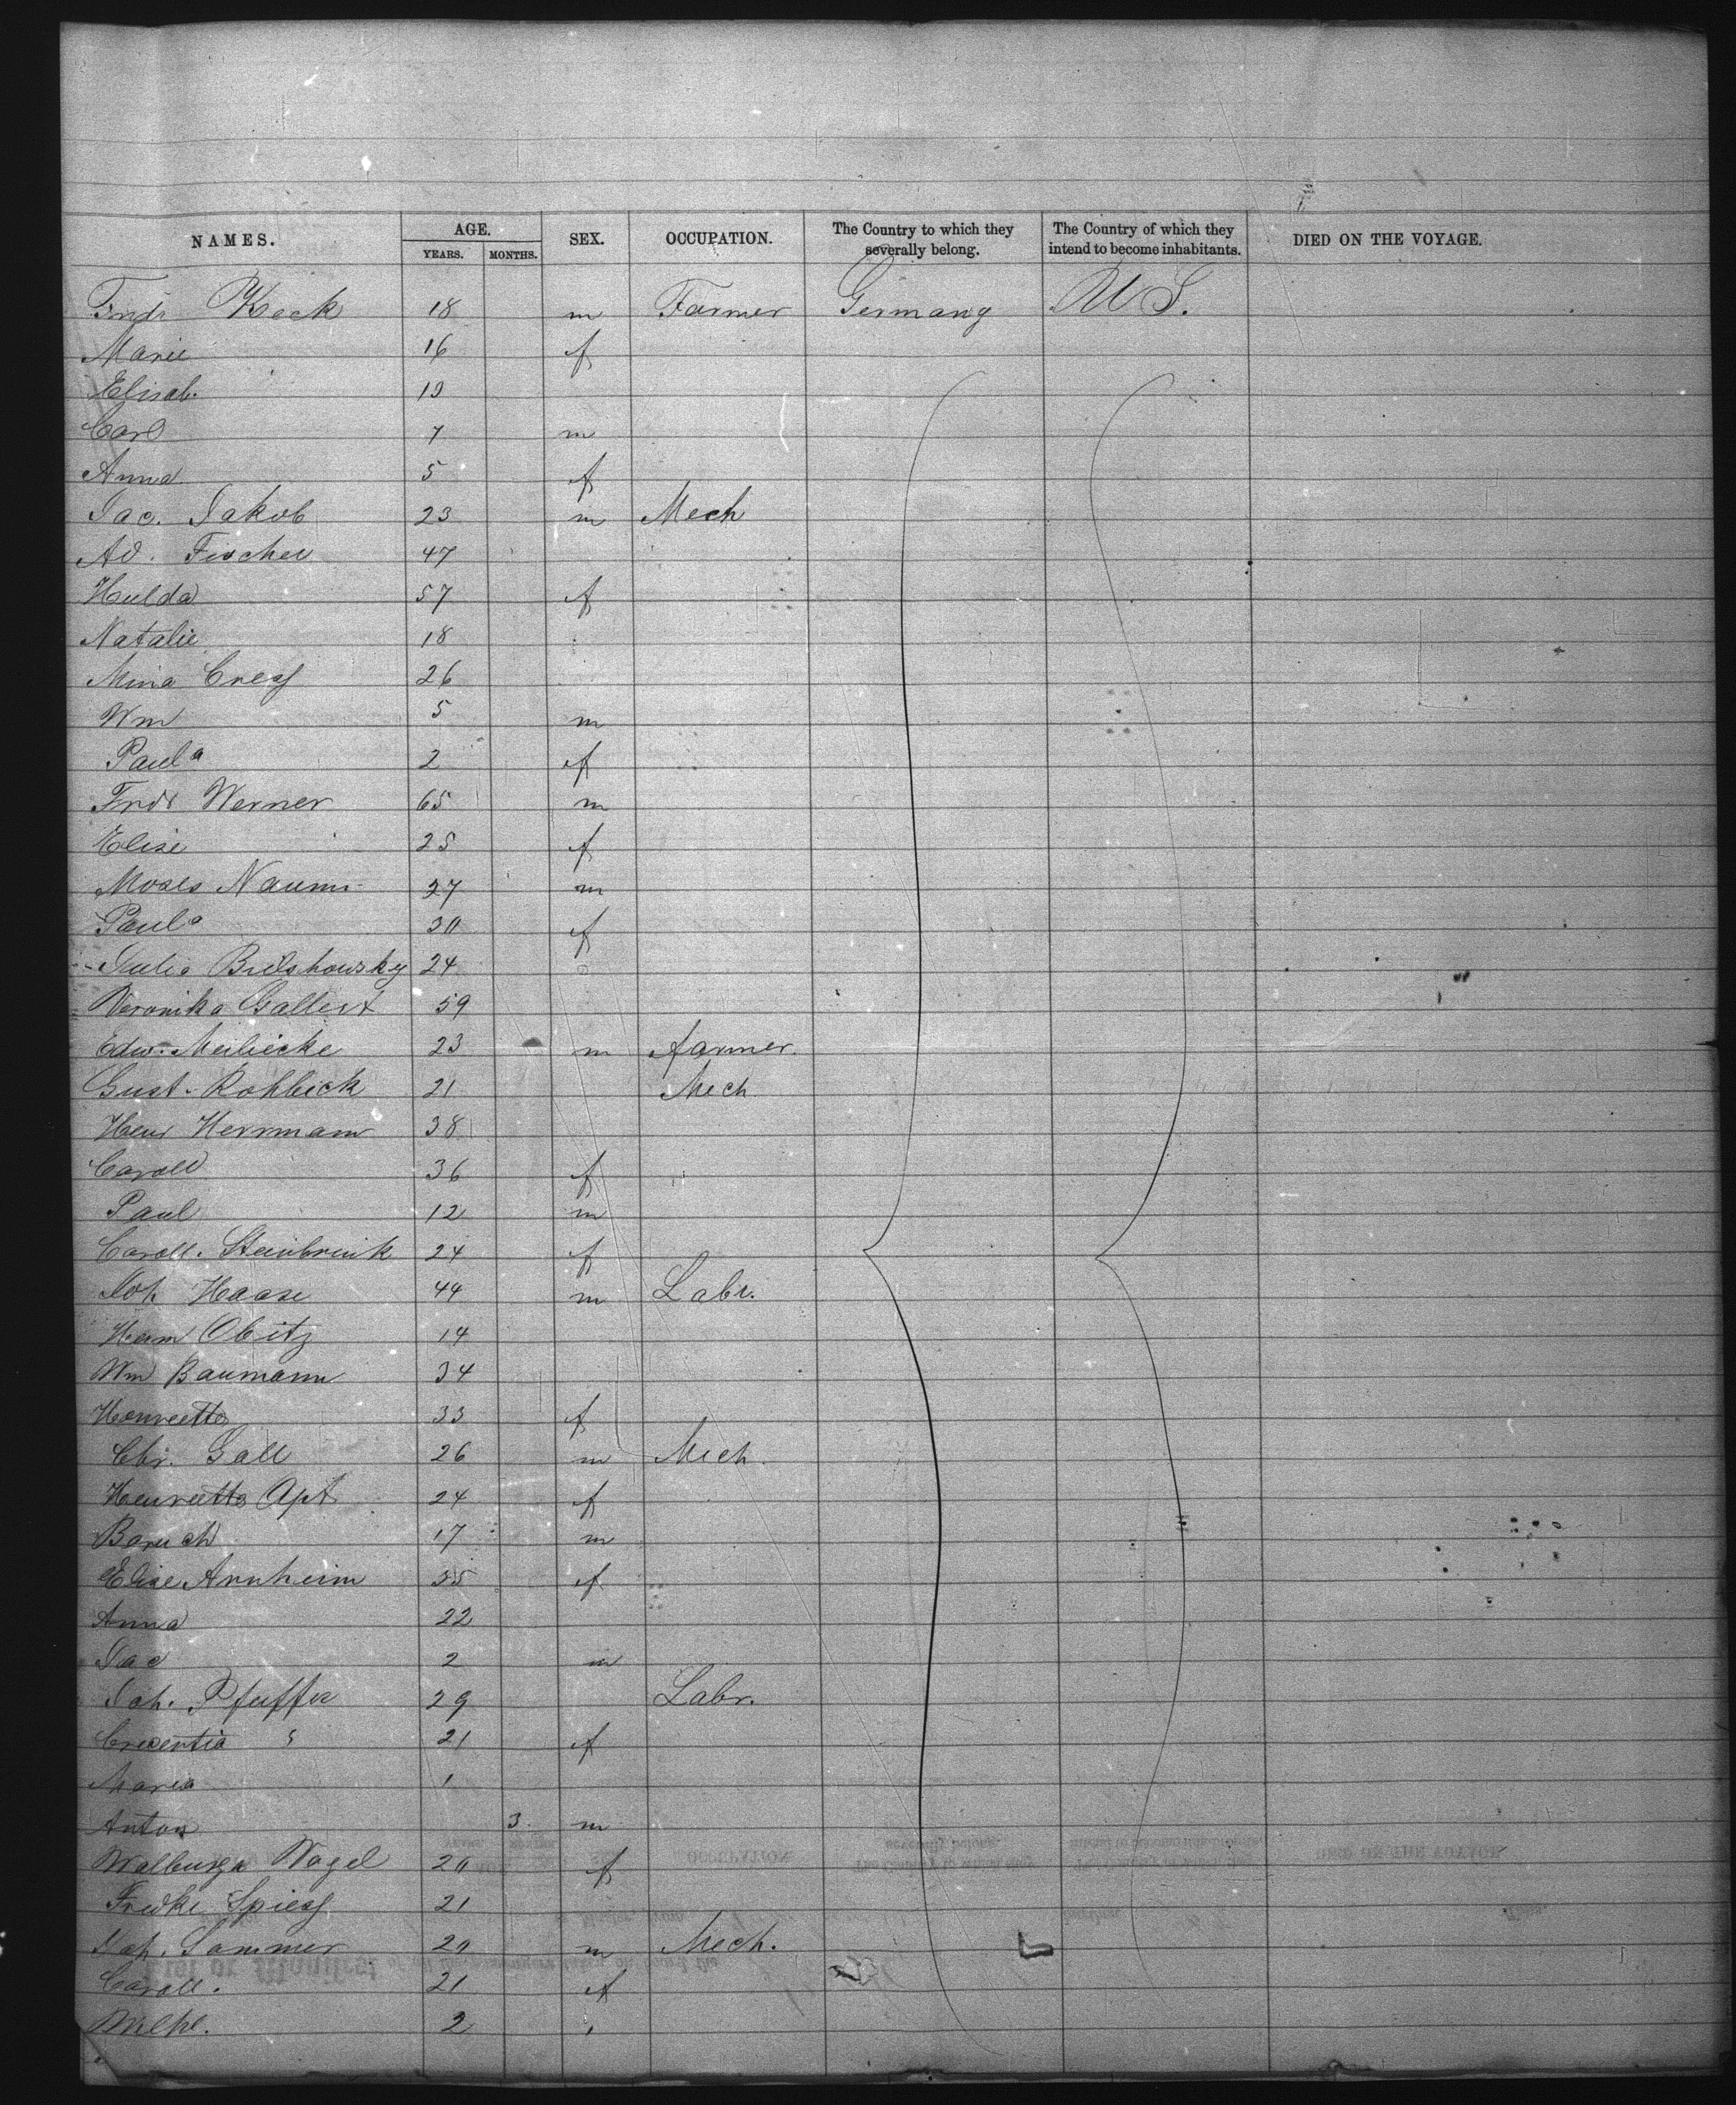 NAMES. AGE. SEX. OCCUPATION. The Country to which they severally belong. The Country of which they intend to become inhabitants. DIED ON THE VOYAGE.
YEARS. MONTHS.
Fridr Keck 18 m Farmer Germany U S.
Marie 16 f
Elisab. 13
Carl 7 m
Anna 5 f
Jac. Jakob 23 m Mech
Ad. Fischer 47
Hulda 57 f
Natalie 18
Mina Cress 26
Wm 5 m
Paula 2 f
Fridr Werner 65 m
Elise 25 f
Moses Naum 27 m
Paula 30 f
Julia Bielshowsky 24
Veronika Gallert 59
Edw. Meiliecke 23 m farmer.
Gust. Rohbeck 21 Mech
Heinr Herrmann 38
Caroll 36 f
Paul 12 m
Caroll. Steinbrink 24 f
Joh Haase 44 m Labr.
Herm Obitz 14
Wm Baumann 34
Henriette 33 f
Chr. Gall 26 m Mech.
Henriette Apt 24 f
Baruch 17 m
Elise Arnheim 35 f
Anna 22
Jac 2 m
Joh. Pfeiffer 29 Labr.
Crecentia " 21 f
Maria 1
Anton 3. m
Walburga Nagel 20 f
Fredke Spiess 21
Joh. Sommer 20 m Mech.
Caroll. 21 f
Wilhl. 2 "